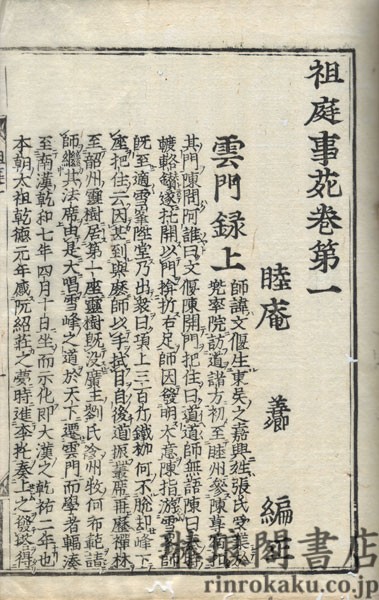 祖庭事苑卷第一
睦庵 善 編
雲門録上
師諱文偃生東吳之嘉興姓張氏受業
兜率院訪道諸方初至睦州參陳尊宿扣
其門陳問阿誰曰文偃陳開門把住曰道道師無語陳曰
轢鑽遂托開以門掩折右足師因發明大意陳指游雪
既至適雪峯陞堂乃出衆曰項上三百斤鐵枷何不脫却峰下
座把住云因甚到與麼師以手拭目自後道振叢席再歷禪林
至韶州靈樹居第一座靈樹既没廣主劉氏令州牧何布範請
師繼其法席由是大唱雪峰之道於天下遷雲門而學者輻湊
至南漢乾和七年四月十日坐而示化即大漢之乾祐二年也
本朝太祖乾德元年感阮紹莊之夢時進李托奏上之發塔得
琳琅閣書店
rinrokaku.co.jp